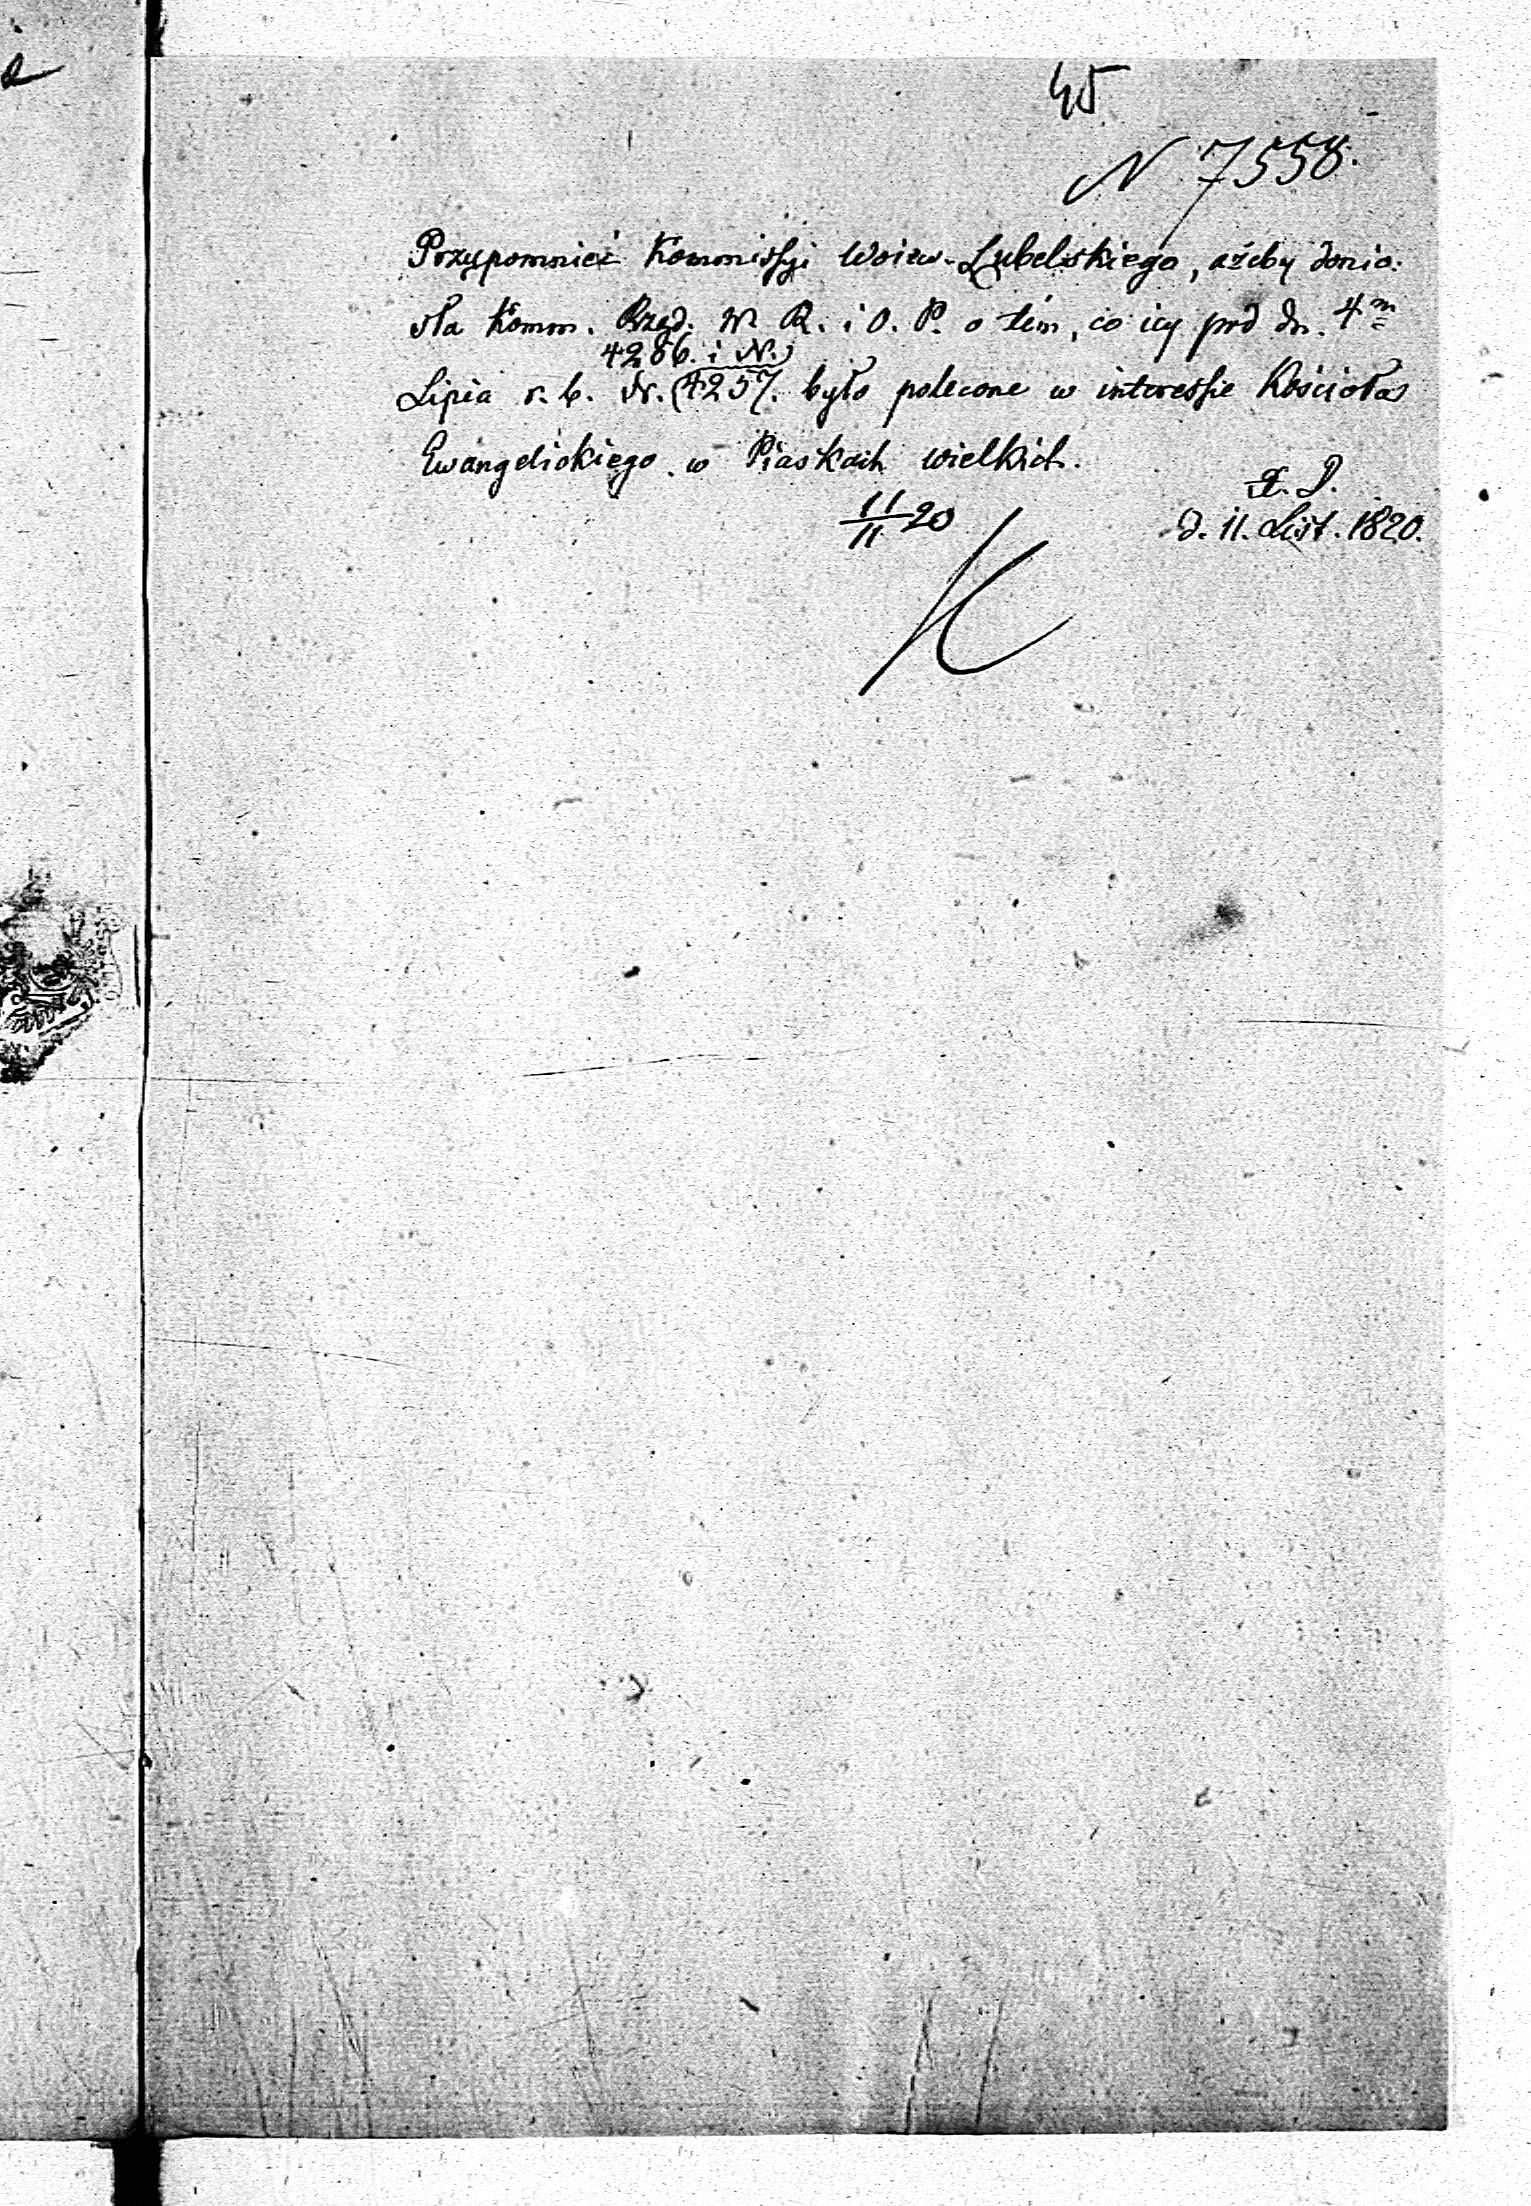 45
N 7558.
Przypomnieć Kommissyi Woiew. Lubelskiego, ażeby donio:
sła Komm. Rząd. W. R. i O. P. o tém, co iey pod dn. 4m
4286. i N.
Lipia r. b. N. 4257. było polecone w interessie Kościoła
Ewangelickiego w Piaskach wielkich.
11/11 20
d. 11. List. 1820.
K